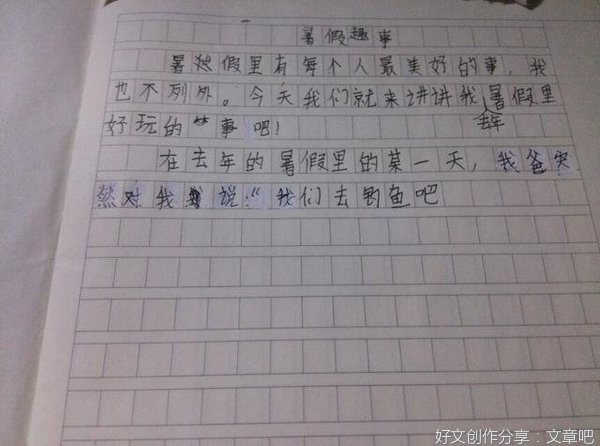 暑假趣事
暑假里有每个人最美好的事，我
也不列外。今天我们就来讲讲我去年暑假里
好玩的事吧！
在去年的暑假里的某一天，我爸突
然对我说：“我们去钓鱼吧
好文创作分享：文章吧